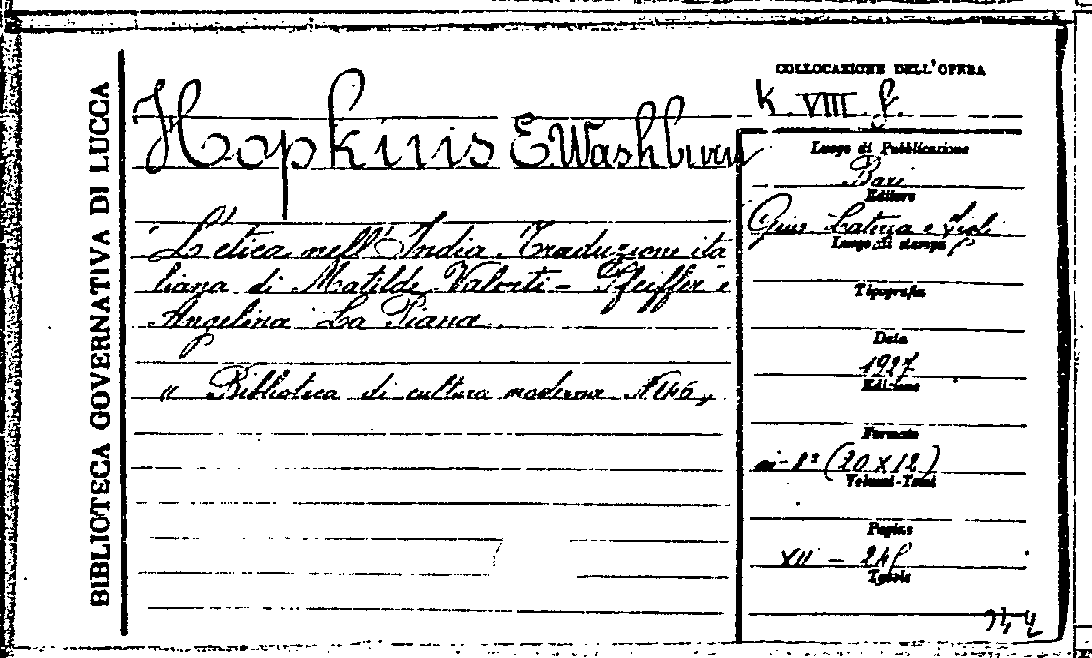 BIBLIOTECA GOVERNATIVA DI LUCCA
Hopkins E Washburn
L'etica nell'India. Traduzione ita
liana di Matilde Valenti - Pfeiffer e
Angelina La Piana
" Biblioteca di cultura moderna N 146 "
COLLOCAZIONE DELL'OPERA
K. VIII. f.
Luogo di Pubblicazione
Bari
Editore
Gius Laterza e Figli
Luogo di stampa
Tipografia
Data
1927
Edizione
Formato
in-8º (20 x 12)
Volumi-Tomi
Pagine
XII -
Tavole